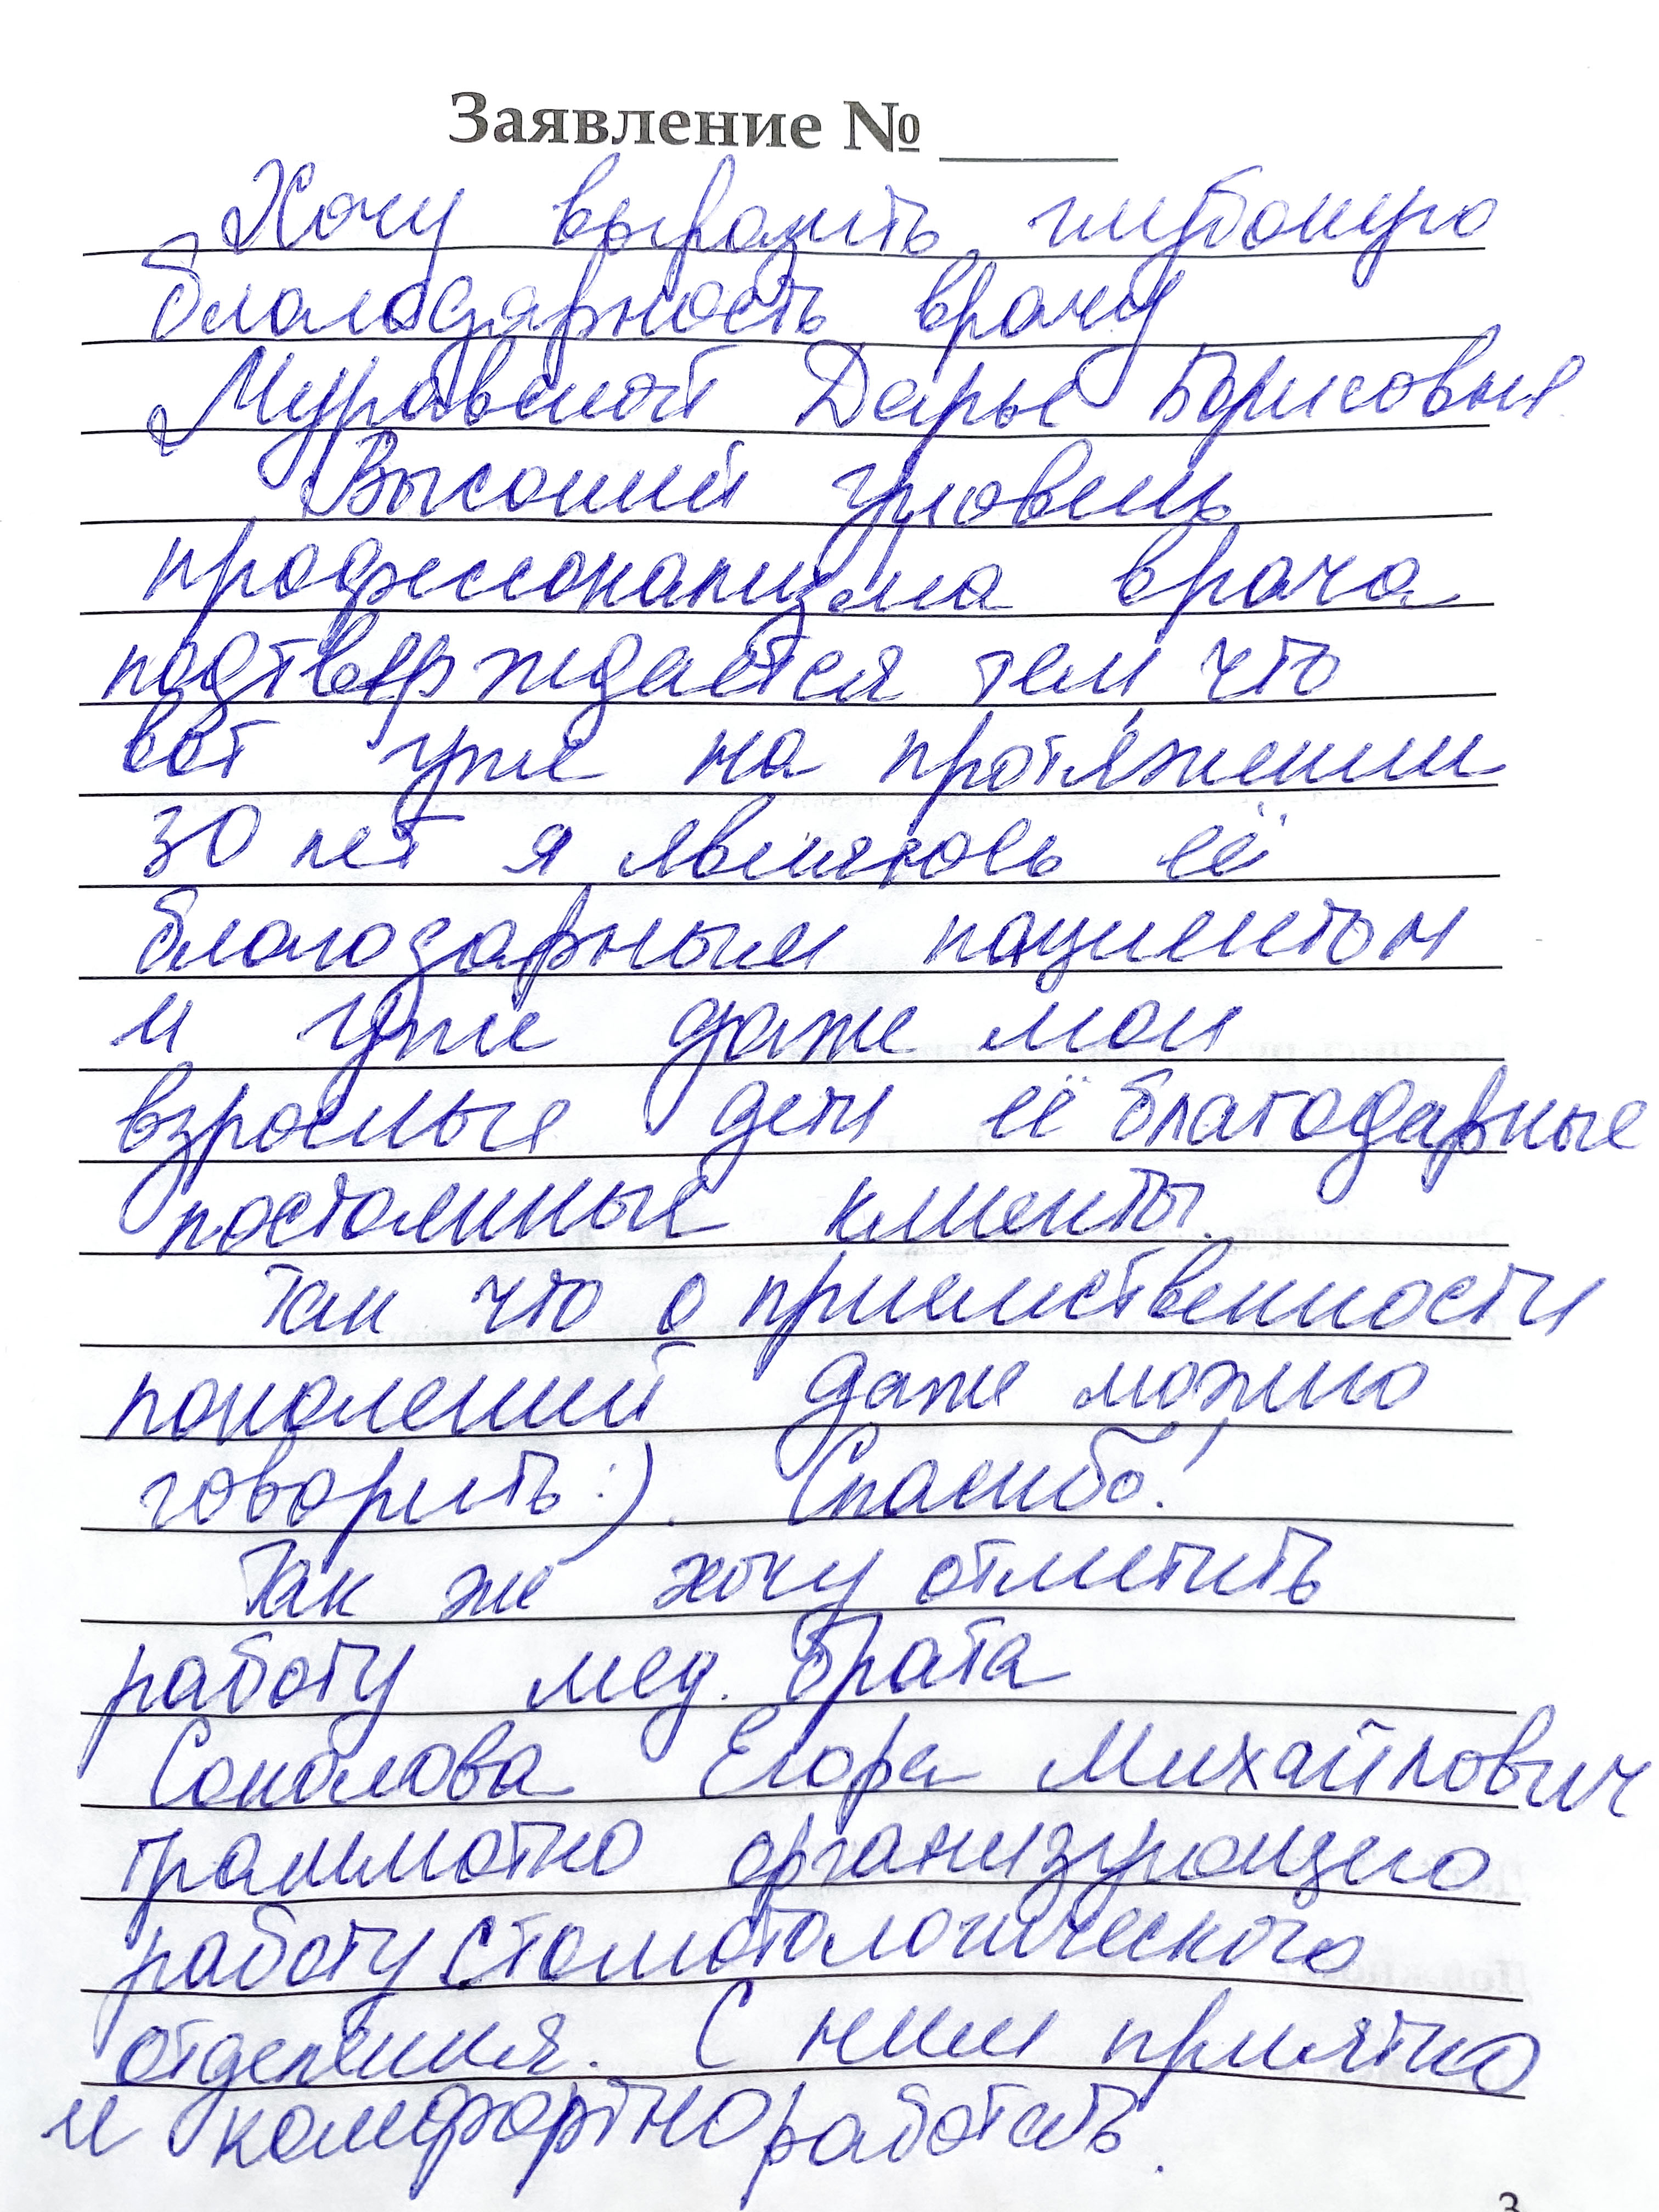 Заявление № ____
Хочу выразить глубокую
благодарность врачу
Муравской Дарье Борисовне
Высокий уровень
профессионализма врача
подтверждается тем, что
вот уже на протяжении
30 лет я являюсь её
благодарным пациентом
и уже даже мои
взрослые дети её благодарные
постоянные клиенты.
Так что о приемственности
поколений даже можно
говорить :). Спасибо!
Так же хочу отметить
работу мед. брата
Соколова Егора Михайлович
грамотно организующего
работу стоматологического
отделения. С ним приятно
и комфортно работать.
3